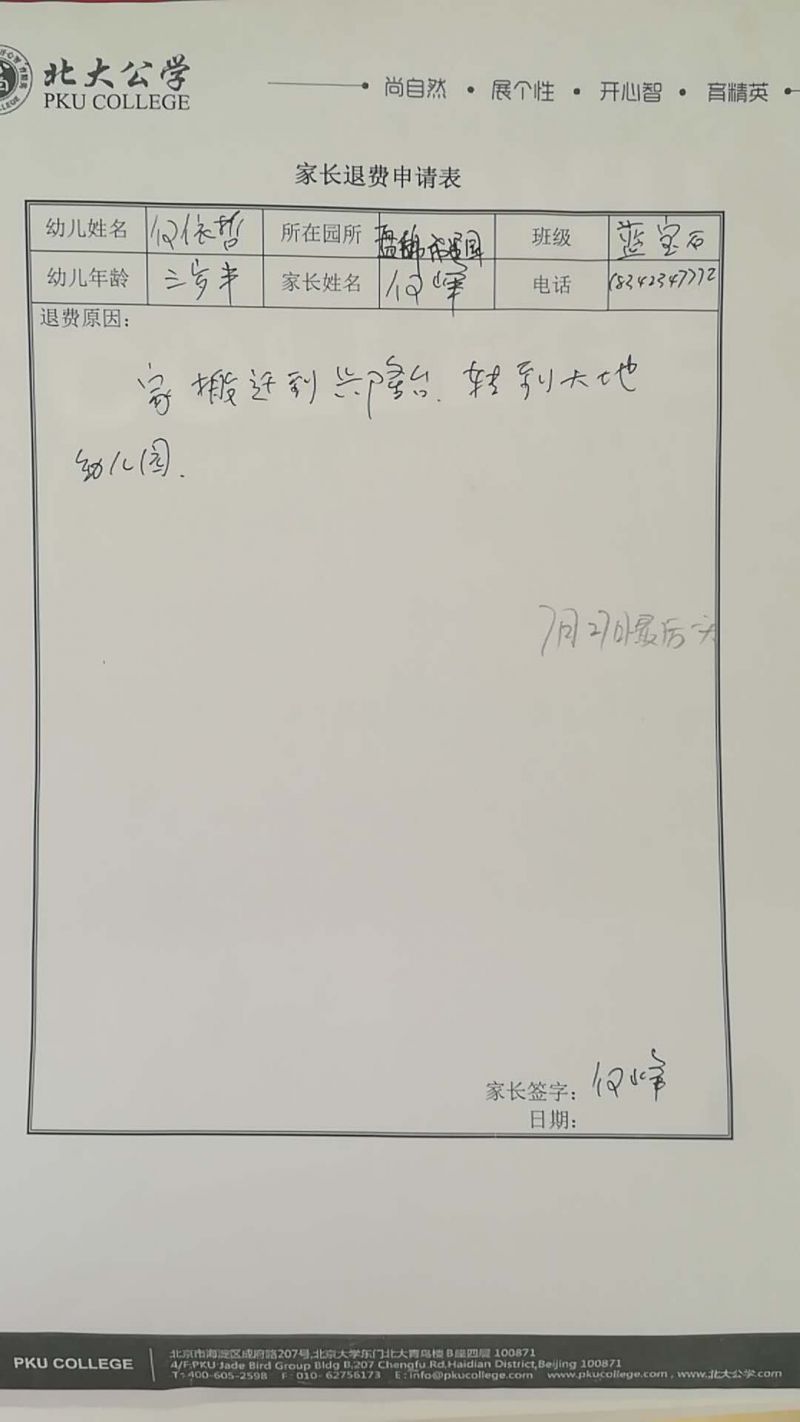 北大公学
PKU COLLEGE
尚自然 · 展个性 · 开心智 · 育精英
家长退费申请表
幼儿姓名 仪依哲 所在园所 班级 蓝宝石
幼儿年龄 三岁半 家长姓名 仪峰 电话 18342347772
退费原因：
家搬迁到兴隆台. 转到大地
幼儿园.
7月27日最后一天
家长签字： 仪峰
日期：
PKU COLLEGE
北京市海淀区成府路207号,北京大学东门北大青鸟楼B座四层 100871
4/F,PKU Jade Bird Group Bldg B,207 Chengfu Rd,Haidian District,Beijing 100871
T：400-605-2598 F：010- 62756173 E：info@pkucollege.com www.pkucollege.com , www.北大公学.com